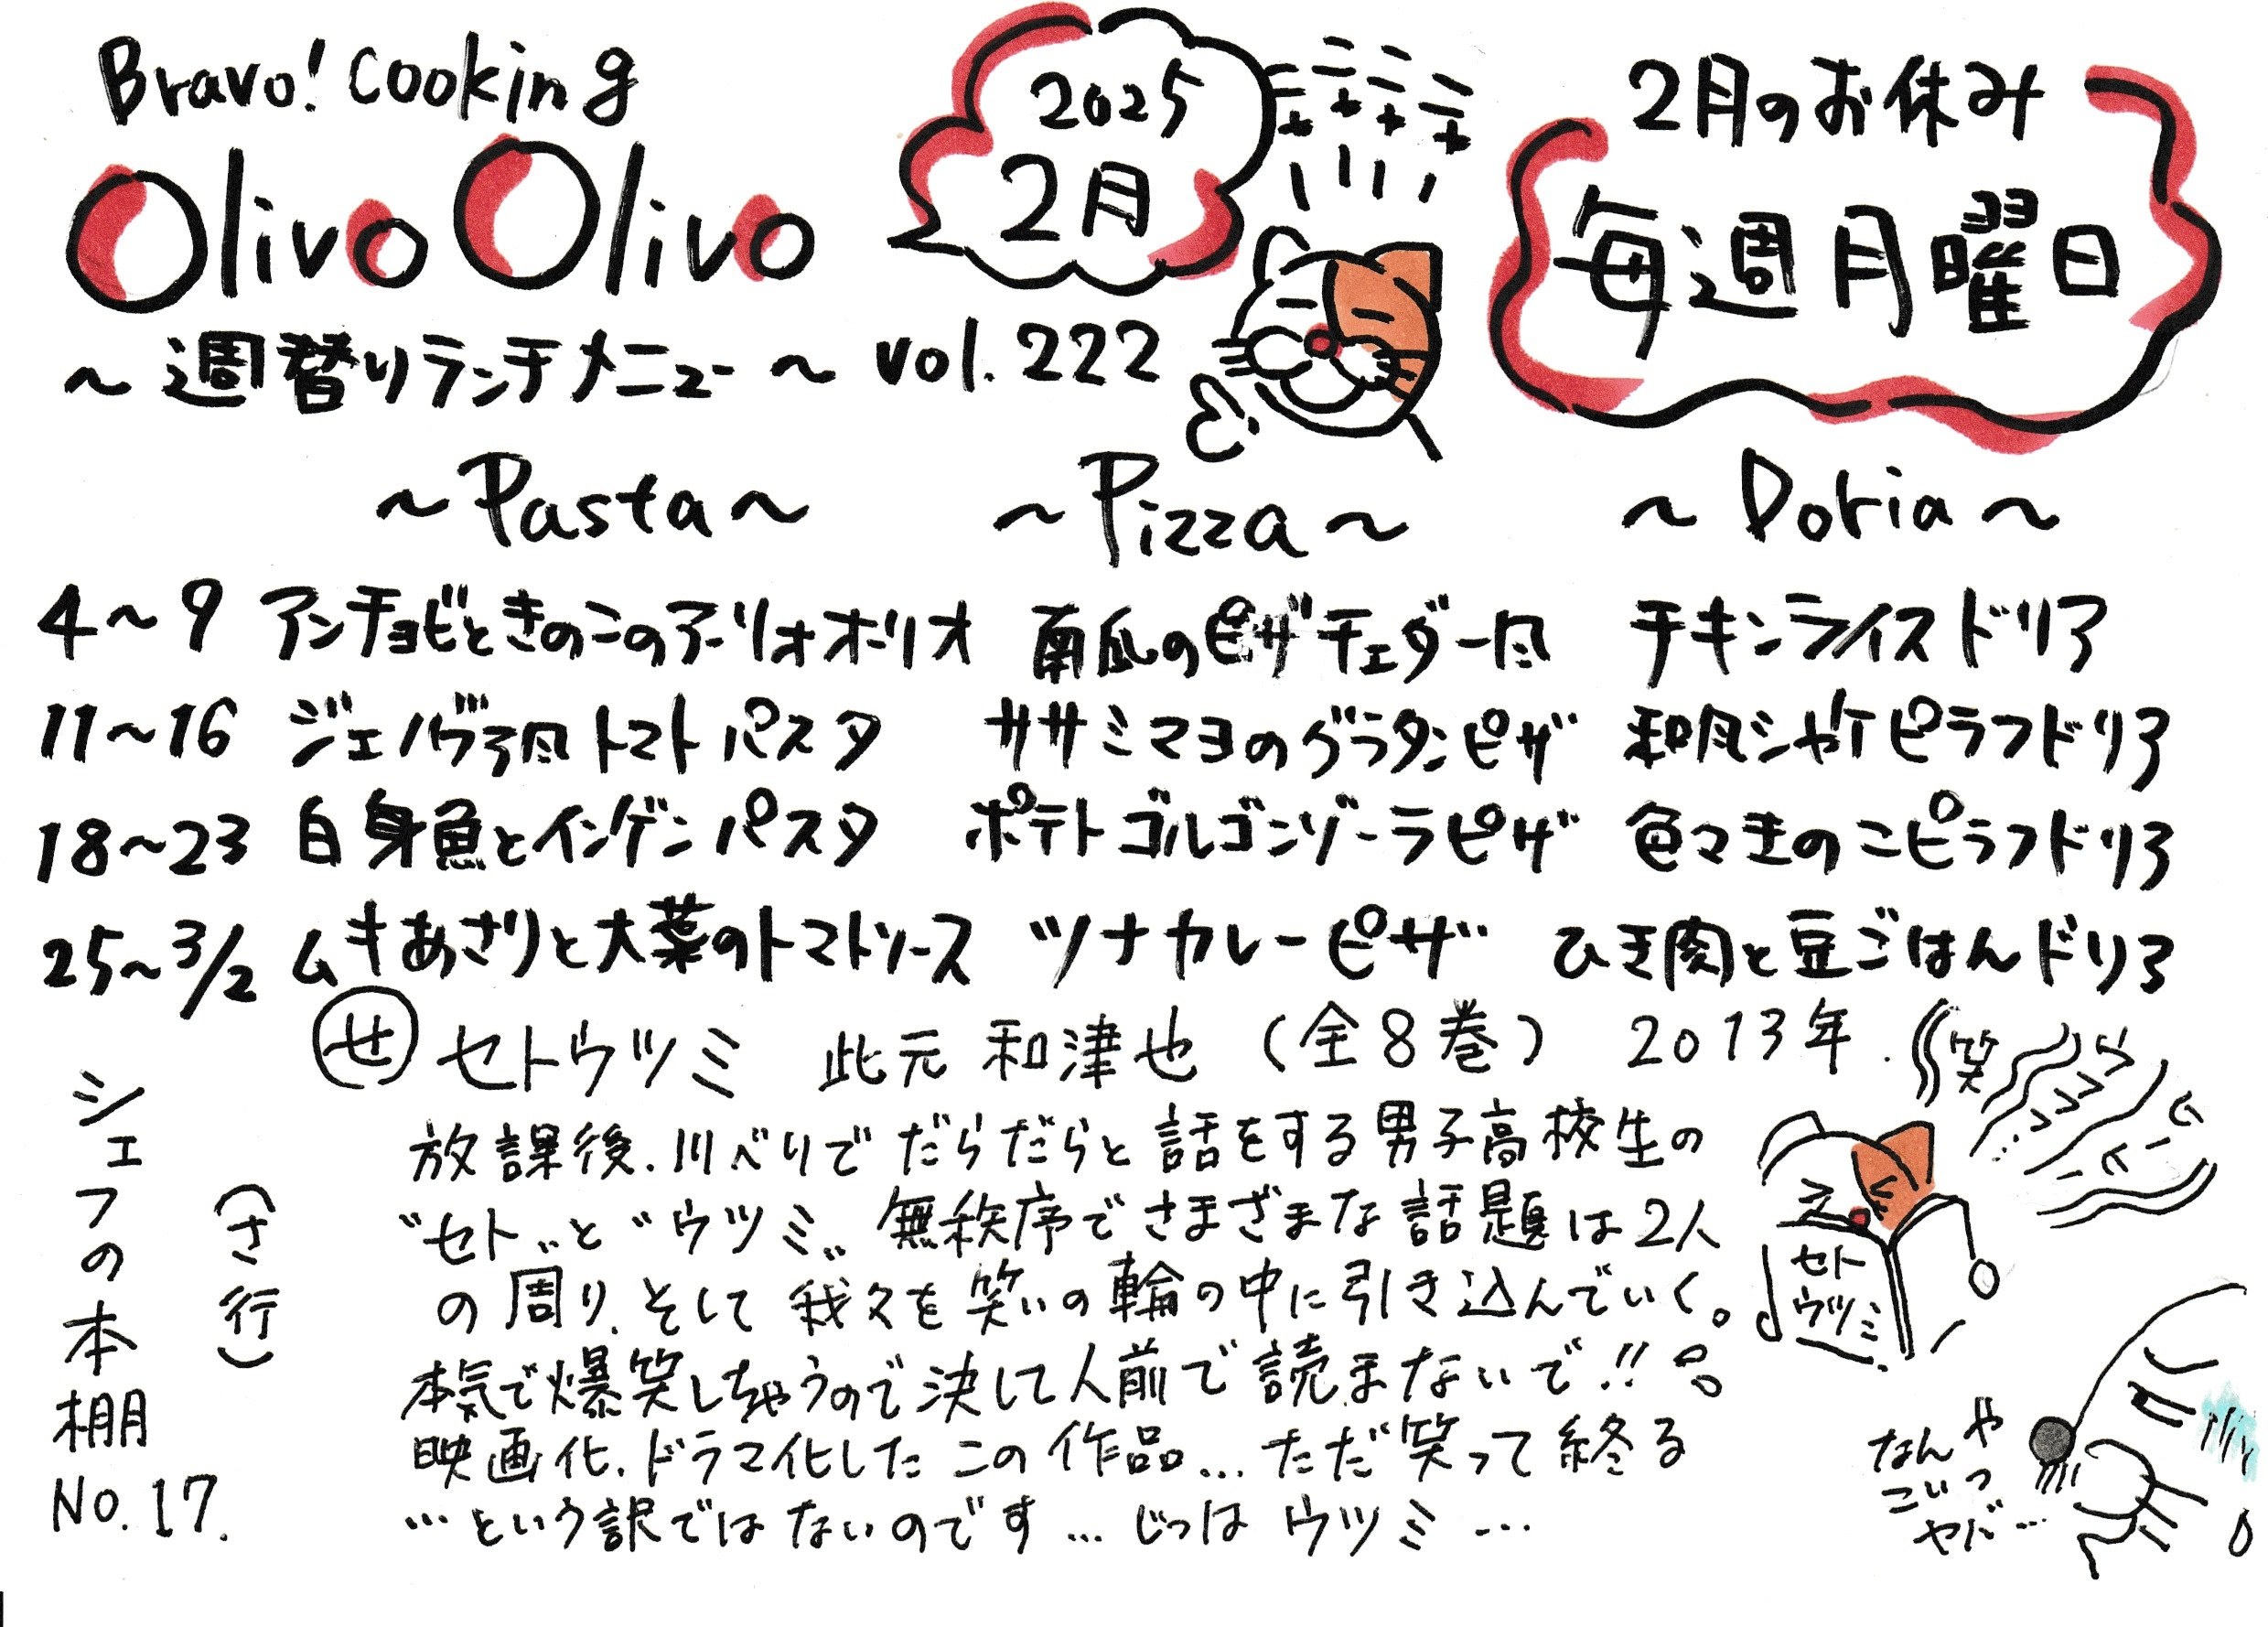 Bravo! cooking
Olivo Olivo
～週替りランチメニュー～ vol.222
2025
2月
ニャニャニャニャ
2月のお休み
毎週月曜日
～Pasta～ ～Pizza～ ～Doria～
4～9 アンチョビときのこのアーリオオーリオ 南瓜のピザチェダー風 チキンライスドリア
11～16 ジェノヴァ風トマトパスタ ササミマヨのグラタンピザ 和風シャケピラフドリア
18～23 白身魚とインゲンパスタ ポテトゴルゴンゾーラピザ 色々きのこピラフドリア
25～3/2 ムキあさりと大葉のトマトソース ツナカレーピザ ひき肉と豆ごはんドリア
シェフの本棚
NO.17.
(さ行)
せ セトウツミ 此元和津也 (全8巻) 2013年.
放課後、川べりでだらだらと話をする男子高校生の
"セト"と"ウツミ"無秩序でさまざまな話題は2人
の周り、そして我々を笑いの輪の中に引き込んでいく。
本気で爆笑しちゃうので決して人前で読まないで!!
映画化、ドラマ化したこの作品…ただ笑って終る
…という訳ではないのです…じつはウツミ…
笑
セト
ウツミ
なんや
こいつ
やべ…